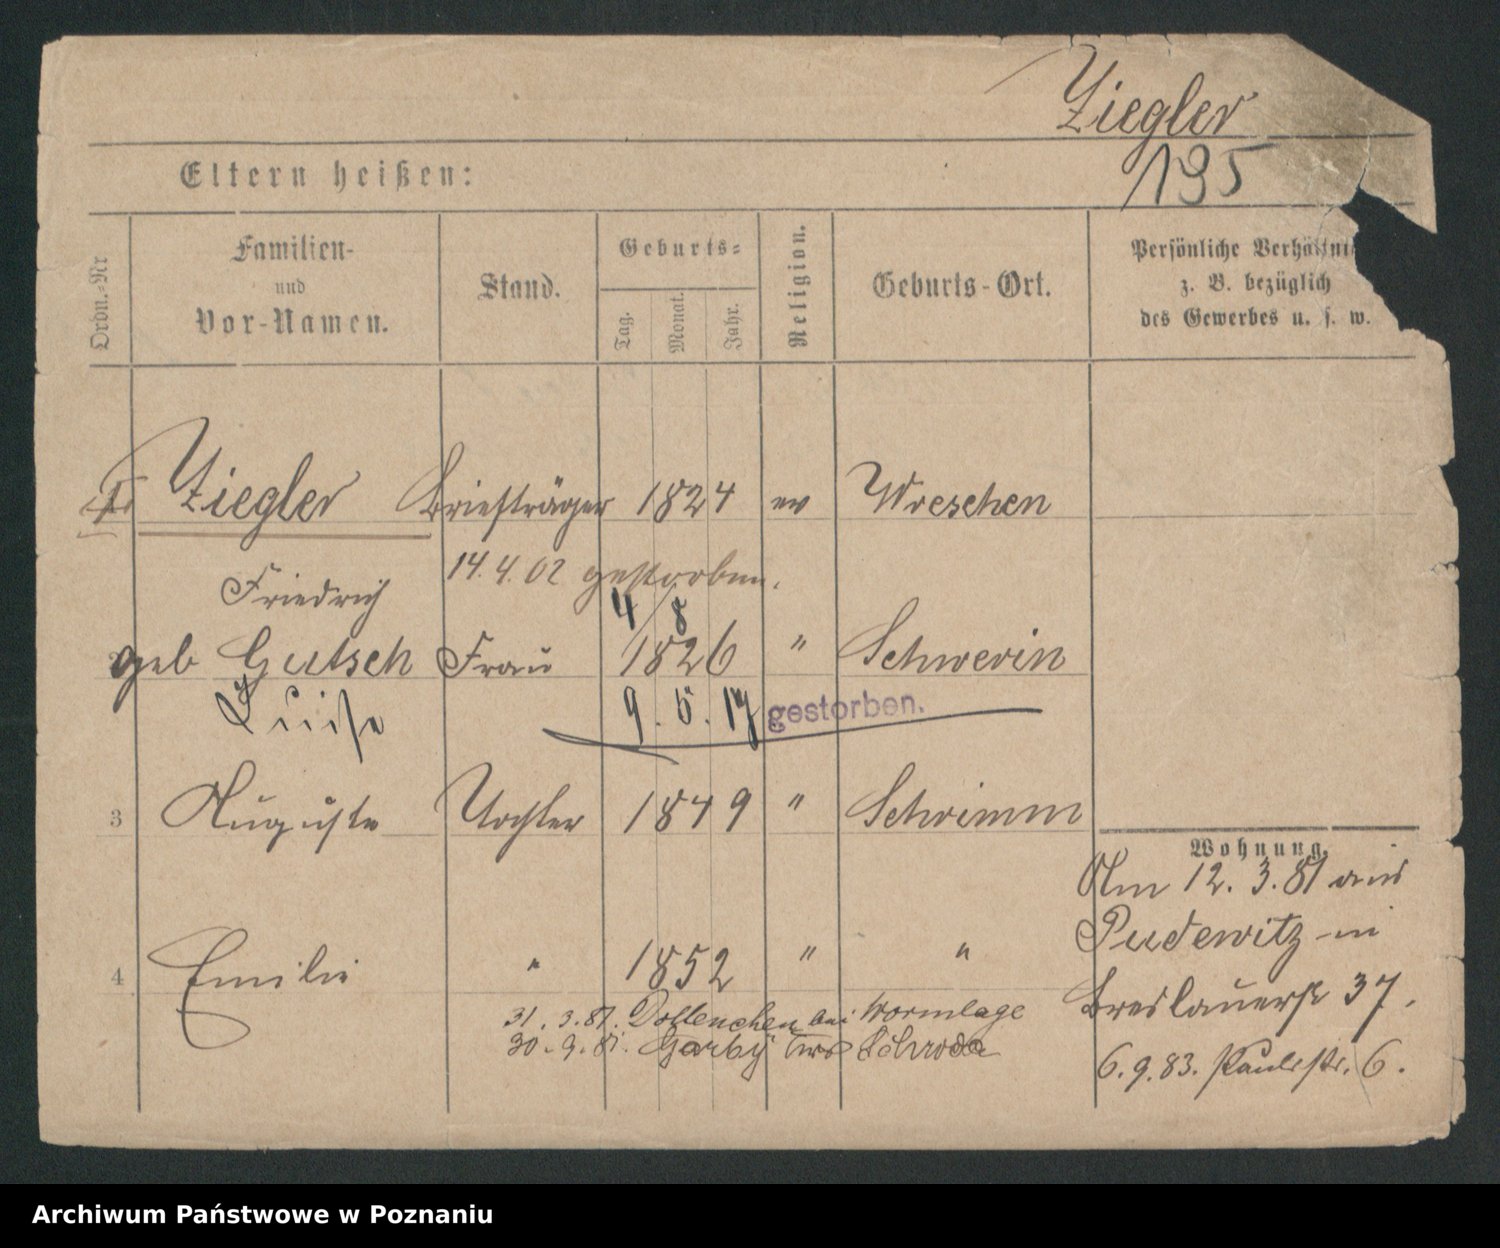 Ziegler
195
Eltern heißen:
Ordn.-Nr
Familien-
und
Vor-Namen.
Stand.
Geburts-
Tag.
Monat.
Jahr.
Religion.
Geburts-Ort.
Persönliche Verhältni
z. B. bezüglich
des Gewerbes u. s. w.
Ziegler Briefträger 1824 ev Wreschen
14.4.02 gestorben.
Friedrich
4/8
geb Gutsch Frau 1826 " Schwerin
Luise 9.5.17 gestorben.
3 Auguste Tochter 1849 " Schrimm
4 Emilie " 1852 " "
31.3.81. Dollenchen bei Wormlage
30.9.81. Garby Krs Schroda
Wohnung.
Am 12.3.81 aus
Pudewitz in
Breslauerstr 37.
6.9.83. Paulistr. 6.
Archiwum Państwowe w Poznaniu